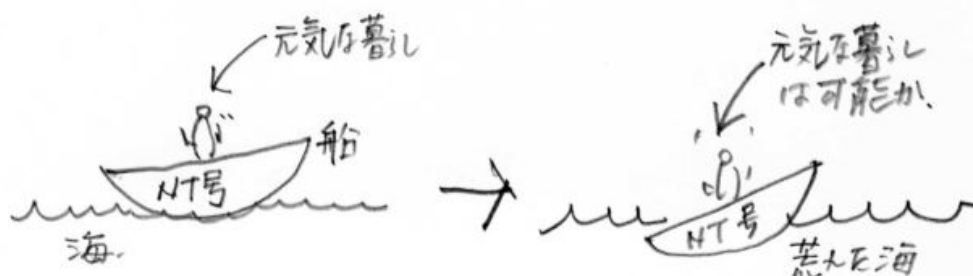 元気な暮らし
船
NT号
海
元気な暮らし
は可能か
NT号
荒れた海